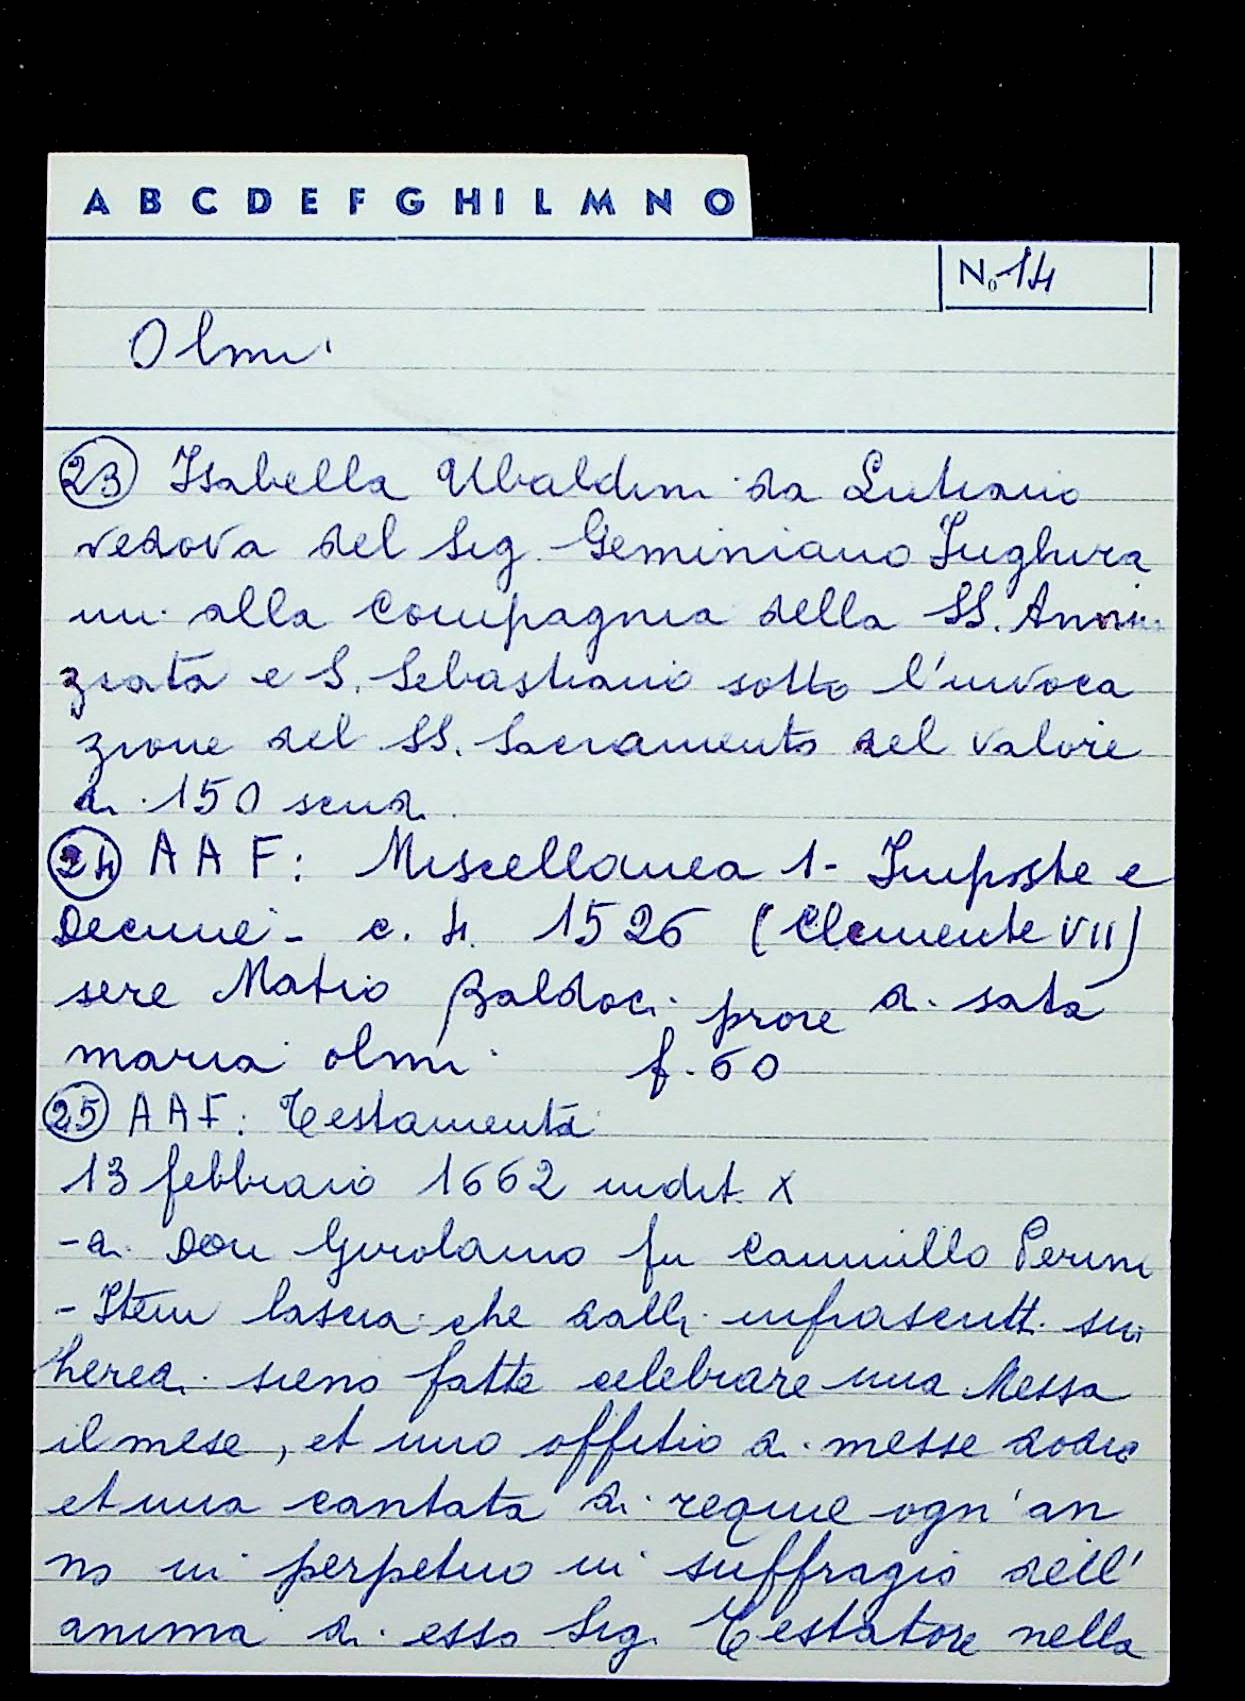 A B C D E F G H I L M N O
No 14
Olmi
23 Isabella Ubaldini da Lutiano
vedova del Sig. Geminiano Inghira
mi alla Compagnia della SS. Annun
ziata e S. Sebastiano sotto l'invoca
zione del SS. Sacramento del valore
di 150 scudi.
24 AAF: Miscellanea 1- Imposte e
Decime - c. 4. 1526 (Clemente VII)
sere Matio Baldoci prore di sata
maria olmi f. 60
25 AAF: Testamenti
13 febbraio 1662 indit. X
- di Don Girolamo fu Cammillo Perini
- Item lascia che dalli infrascritti sui
heredi sieno fatte celebrare una Messa
il mese, et uno offitio di messe dodici
et una cantata di requie ogn'an
no in perpetuo in suffragio dell'
anima di esso Sig. Testatore nella